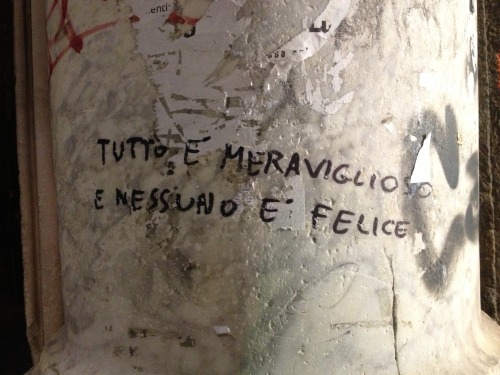 enci:
TUTTO E' MERAVIGLIOSO
E NESSUNO E' FELICE